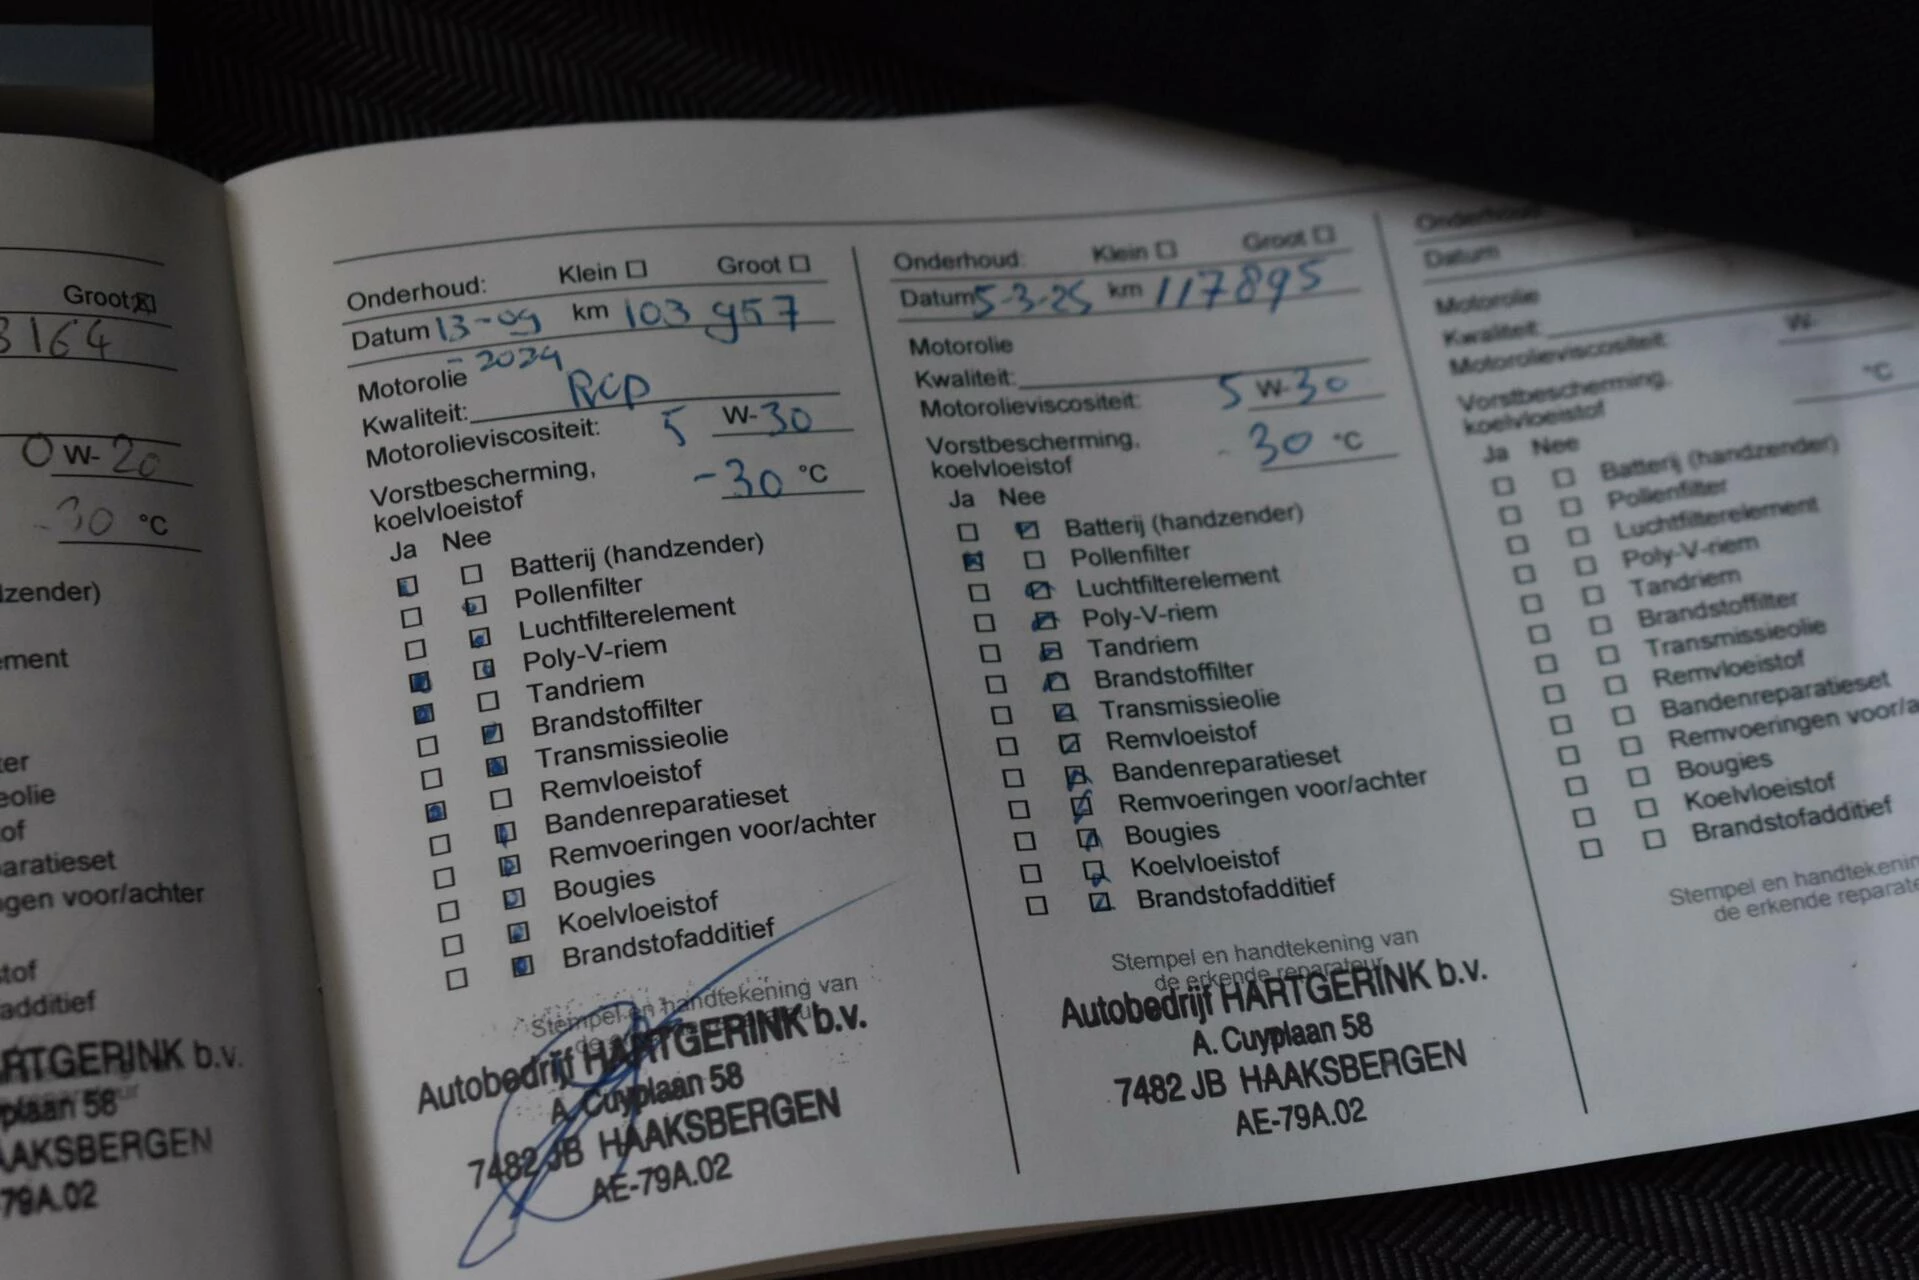 Groot
3164
0 W-20
-30 °C
dzender)
ement
ter
eolie
tof
aratieset
ngen voor/achter
stof
additief
ARTGERINK b.v.
yplaan 58
AAKSBERGEN
-79A.02
Onderhoud: Klein Groot
Datum 13-09 km 103 957
-2024
Motorolie
Kwaliteit: RCP
Motorolieviscositeit: 5 W-30
Vorstbescherming,
koelvloeistof -30 °C
Ja Nee
Batterij (handzender)
Pollenfilter
Luchtfilterelement
Poly-V-riem
Tandriem
Brandstoffilter
Transmissieolie
Remvloeistof
Bandenreparatieset
Remvoeringen voor/achter
Bougies
Koelvloeistof
Brandstofadditief
Stempel en handtekening van
Autobedrijf HARTGERINK b.v.
A. Cuyplaan 58
7482 JB HAAKSBERGEN
AE-79A.02
Onderhoud: Klein Groot
Datum 5-3-25 km 117895
Motorolie
Kwaliteit:
Motorolieviscositeit: 5 W-30
Vorstbescherming,
koelvloeistof -30 °C
Ja Nee
Batterij (handzender)
Pollenfilter
Luchtfilterelement
Poly-V-riem
Tandriem
Brandstoffilter
Transmissieolie
Remvloeistof
Bandenreparatieset
Remvoeringen voor/achter
Bougies
Koelvloeistof
Brandstofadditief
Stempel en handtekening van
de erkende reparateur
Autobedrijf HARTGERINK b.v.
A. Cuyplaan 58
7482 JB HAAKSBERGEN
AE-79A.02
Onderhoud:
Datum
Motorolie
Kwaliteit:
Motorolieviscositeit: W-
Vorstbescherming,
koelvloeistof °C
Ja Nee
Batterij (handzender)
Pollenfilter
Luchtfilterelement
Poly-V-riem
Tandriem
Brandstoffilter
Transmissieolie
Remvloeistof
Bandenreparatieset
Remvoeringen voor/a
Bougies
Koelvloeistof
Brandstofadditief
Stempel en handtekenin
de erkende reparate